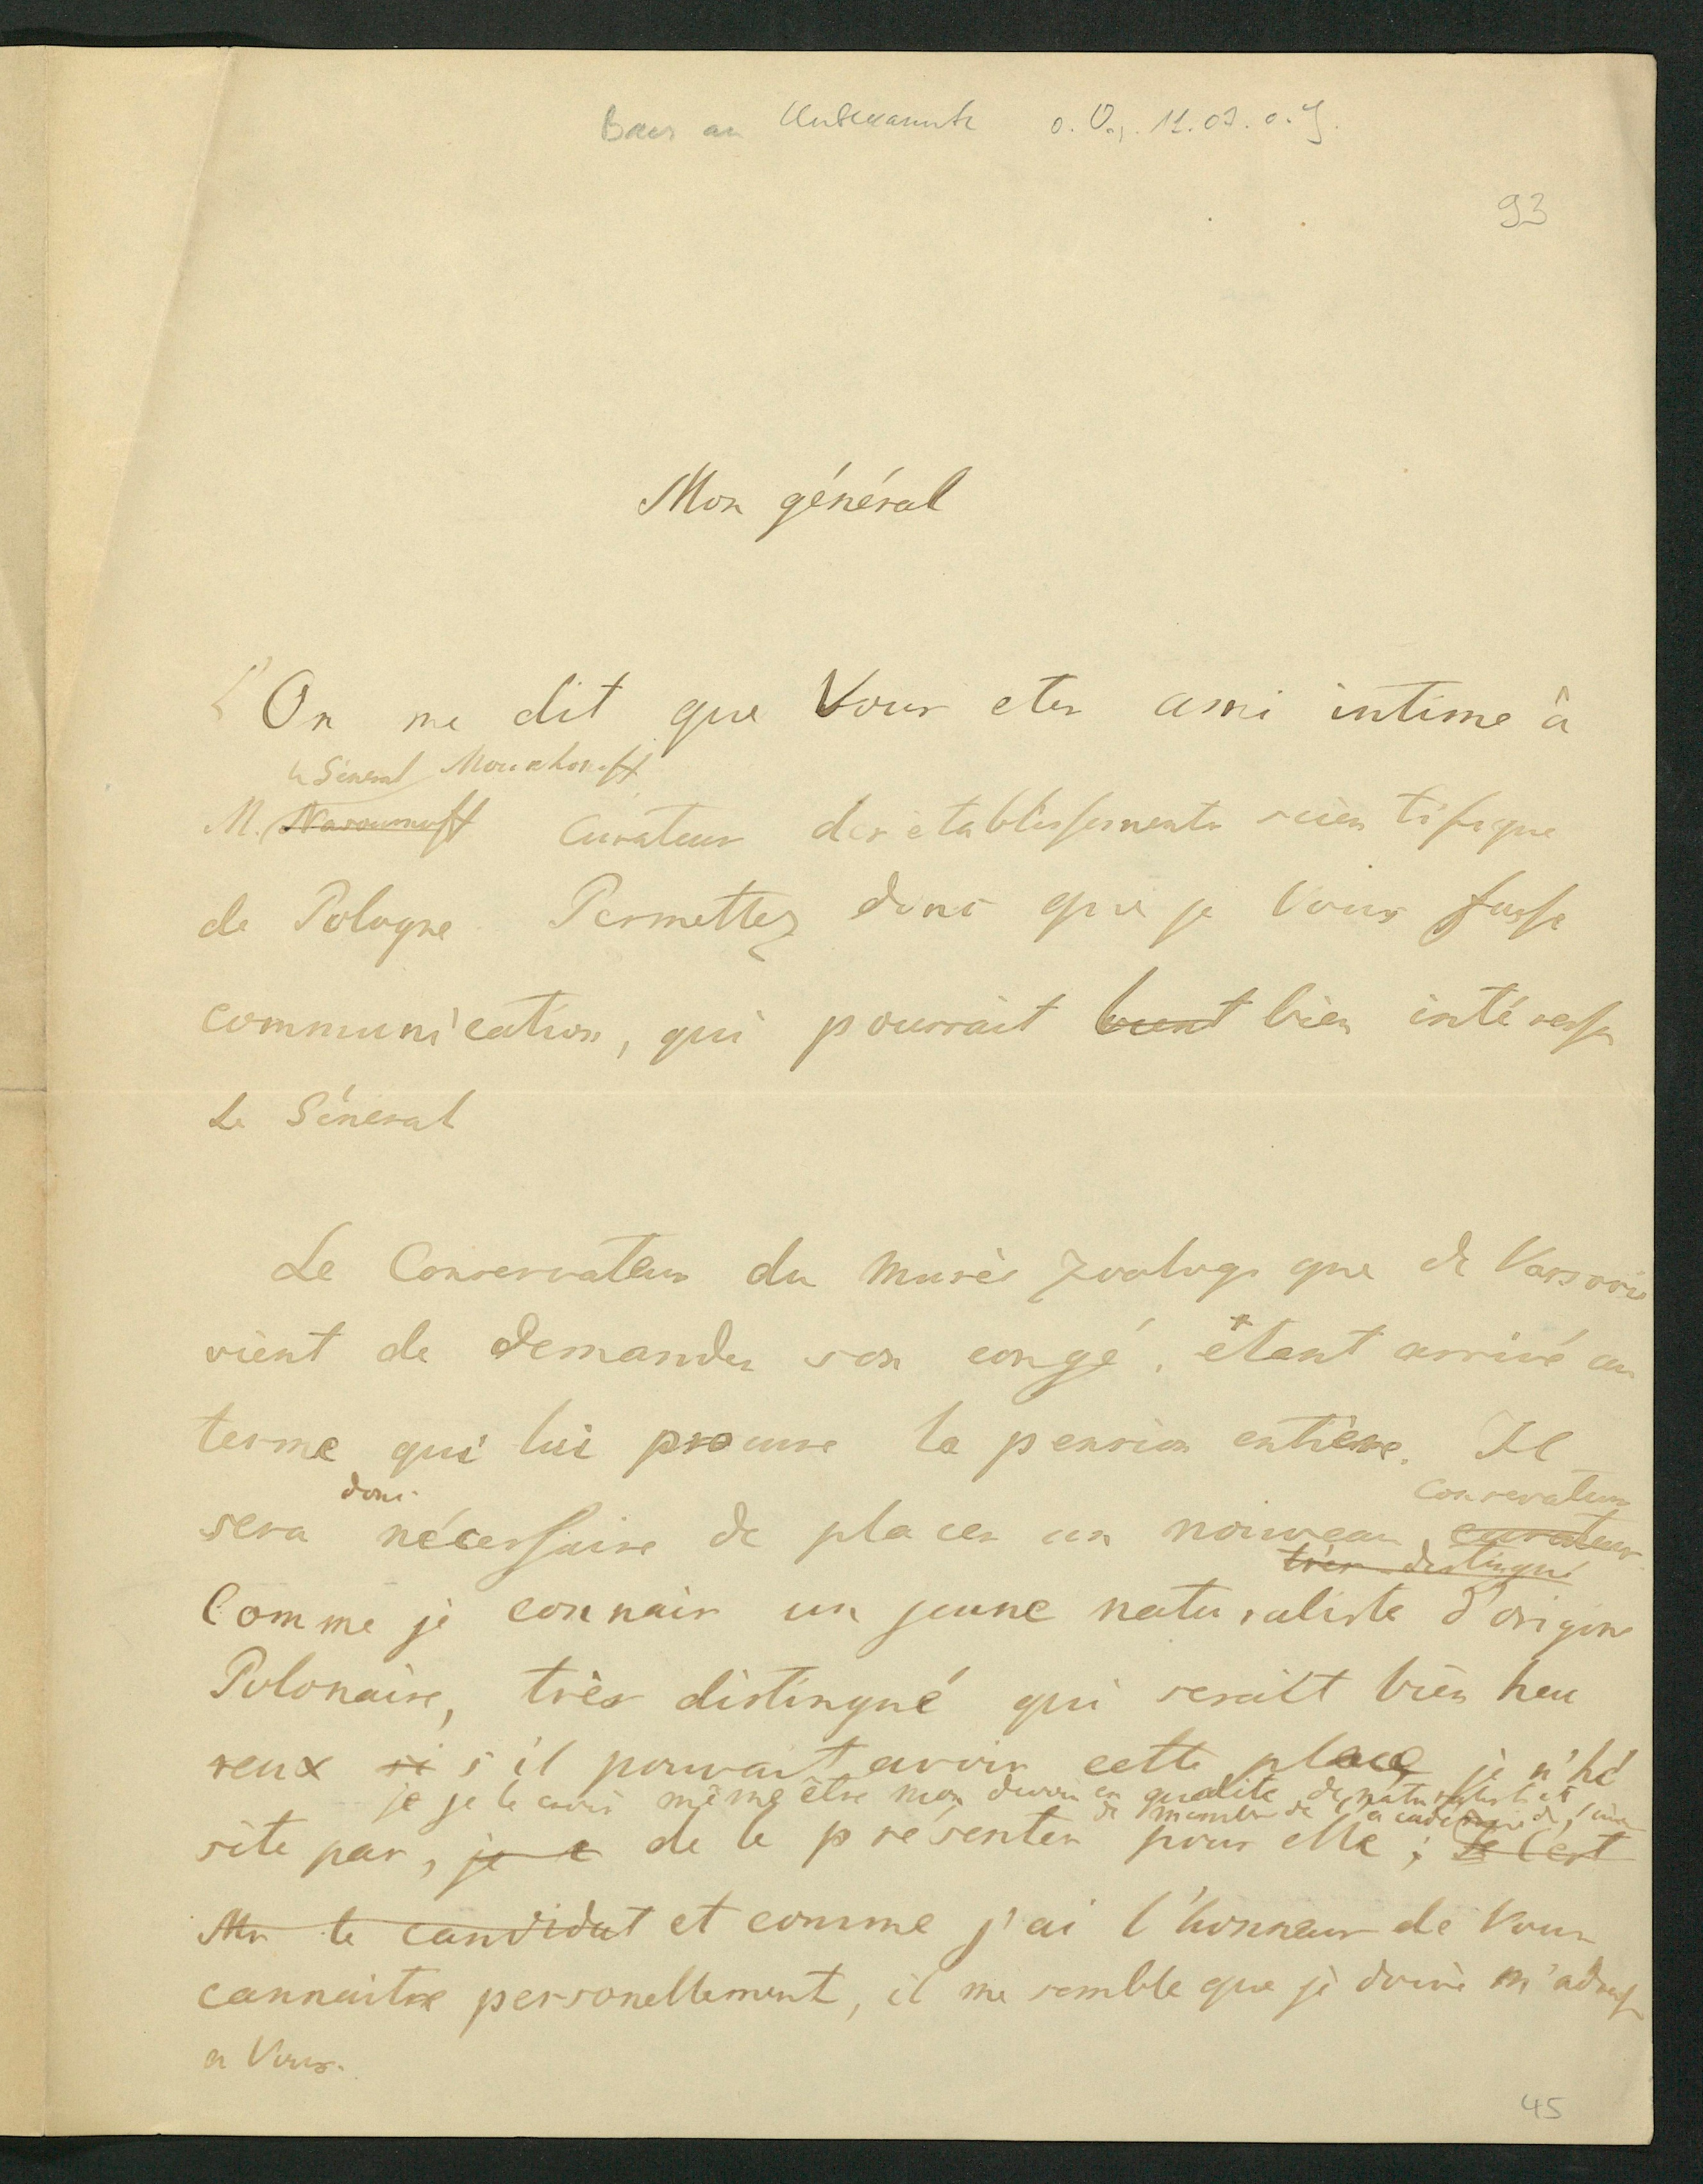 Baer an Unbekannte o. O., 11.03. o. J.
93
Mon général
On me dit que Vous etes ami intime à
le Géneral Mouchanoff
M. Naroumoff Curateur des etablissements scientifique
de Pologne. Permettez donc que je Vous fasse
communication, qui pourrait bien intéresser
Le Géneral
Le Conservateur du Musée zoologique de Varsovie
vient de demander son congé, étant arrivé au
terme qui lui procure la pension entière. Il
donc conservateur
sera nécessaire de placer un nouveau curateur
très distingué
Comme je connais un jeune naturaliste d'origine
Polonaise, très distingué qui serait bien heu
reux si s'il pouvait avoir cette place je n'hé
je je le crois même être mon devoir en qualite de naturaliste et
de membre de l'academie de
site pas, je e de le présenter pour elle; C'est
Mr le candidat et comme j'ai l'honneur de Vous
cannaitre personellement, il me semble que je doive m'adresser
a Vous.
45